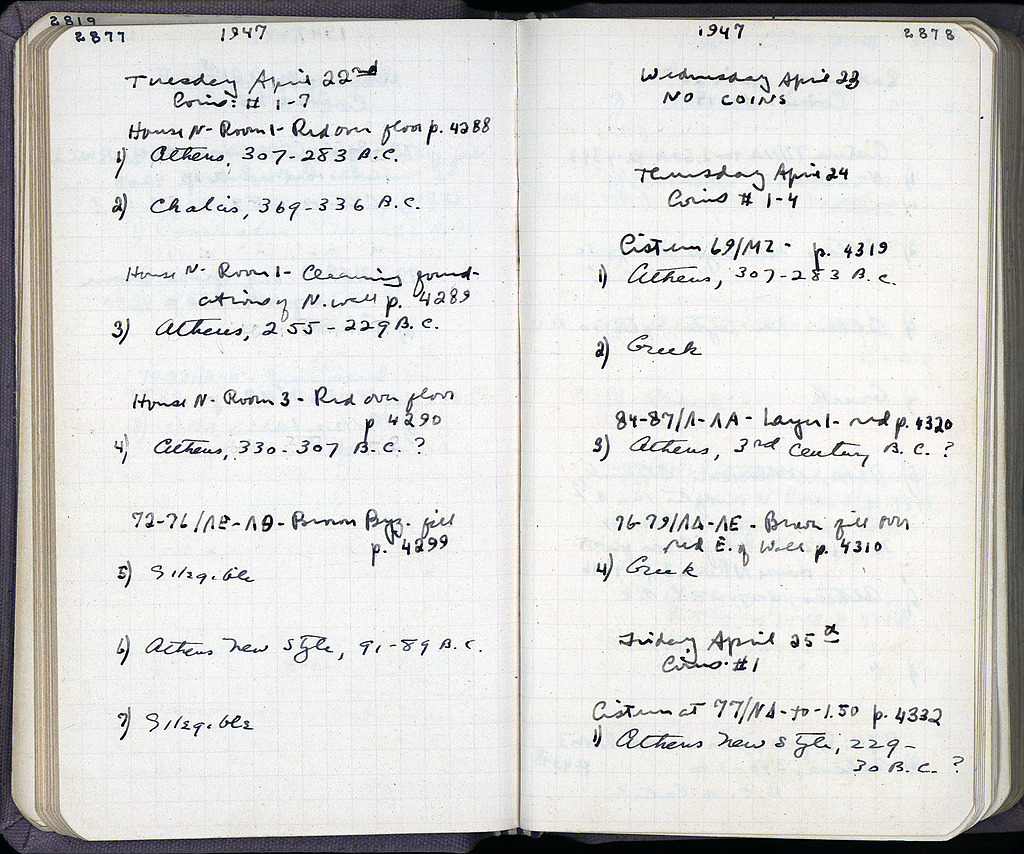 2819
2877
1947
Tuesday April 22nd
Coins: # 1-7
House N - Room 1 - Red over floor p. 4288
1) Athens, 307-283 B.C.
2) Chalcis, 369-336 B.C.
House N - Room 1 - Cleaning found-
ations of N. wall p. 4289
3) Athens, 255-229 B.C.
House N - Room 3 - Red over floor
p 4290
4) Athens, 330-307 B.C. ?
72-76/ΛΕ-ΛΘ - Brown Byz. fill
p. 4299
5) Illegible
6) Athens New Style, 91-89 B.C.
7) Illegible
1947
2878
Wednesday April 23
NO COINS
Thursday April 24
Coins # 1-4
Cistern 69/ΜΖ - p. 4319
1) Athens, 307-283 B.C.
2) Greek
84-87/Λ-ΛΑ - Layer 1 - red p. 4320
3) Athens, 3rd Century B.C. ?
76-79/ΛΔ-ΛΕ - Brown fill over
red E. of Wall p. 4310
4) Greek
Friday April 25th
Coins: #1
Cistern at 77/ΝΔ - to -1.50 p. 4332
1) Athens New Style, 229-
30 B.C. ?